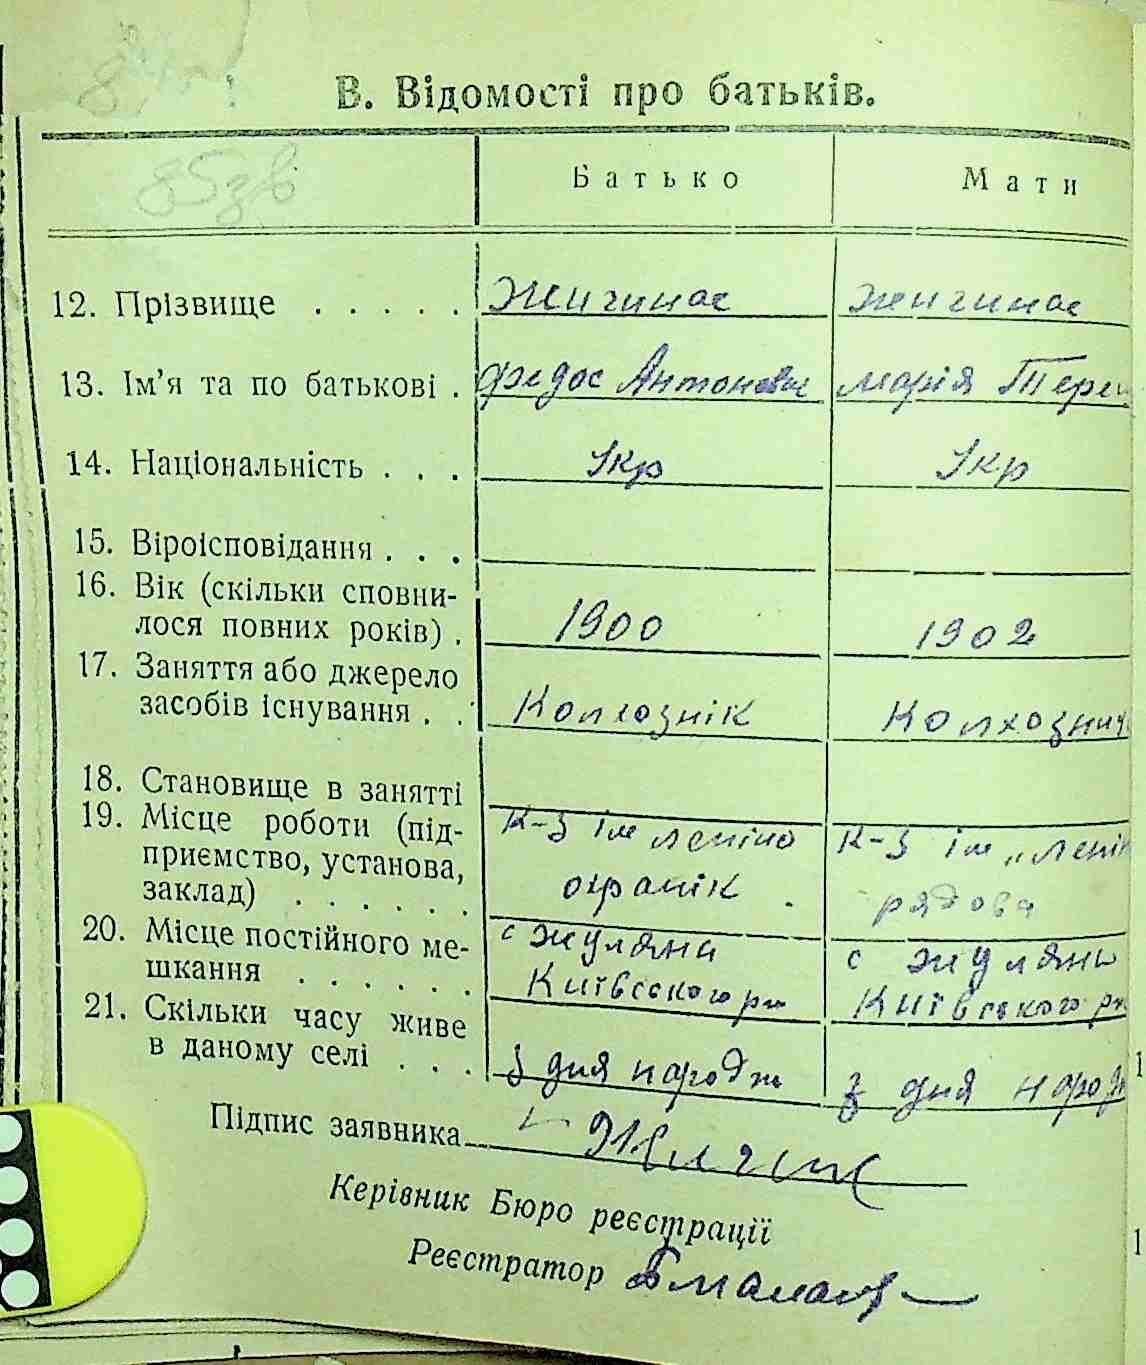 В. Відомості про батьків.
Батько Мати
12. Прізвище . . . . . Жигинас Жигинас
13. Ім’я та по батькові . Федос Антонович Марія Тере
14. Національність . . . Укр Укр
15. Віроісповідання . . .
16. Вік (скільки сповни-
лося повних років) . 1900 1902
17. Заняття або джерело
засобів існування . . Колхознік Колхозниц
18. Становище в занятті
19. Місце роботи (під- К-з ім леніна К-з ім „лені
приємство, установа,
заклад) . . . . . . охранік рядова
20. Місце постійного ме- с жуляни с жуляни
шкання . . . . . . Київського рн Київського рн
21. Скільки часу живе
в даному селі . . . З дня народж з дня народ
Підпис заявника
Керівник Бюро реєстрації
Реєстратор